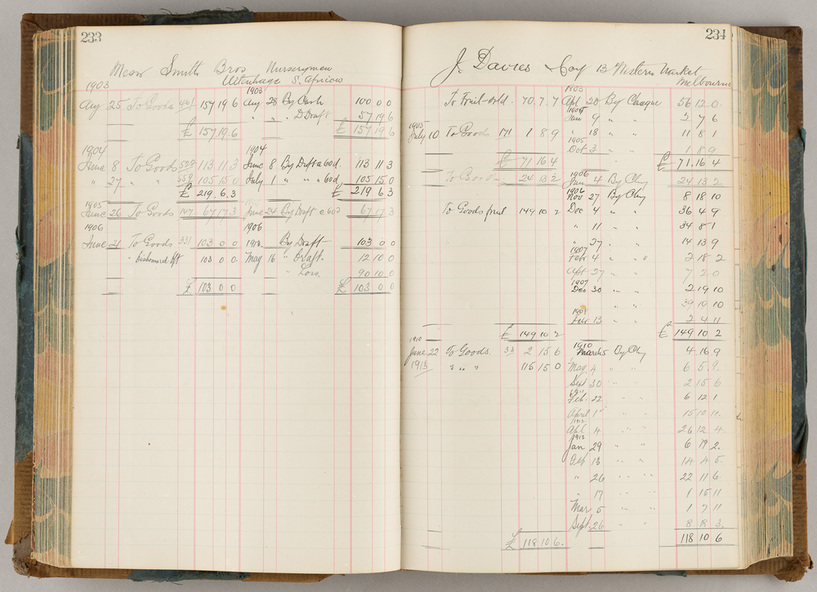 233
Messrs Smith Bros Nurserymen
Uitenhage S. Africa
1903 1903
Aug 25 To Goods 157 19 6 Aug 28 By Cash 100 0 0
" " " D Draft 57 19 6
£ 157 19 6 £ 157 19 6
1904 1904
June 8 To Goods 113 11 3 June 8 By Draft a 60d. 113 11 3
" 27 " " 105 15 0 July 1 " " " 60d 105 15 0
£ 219 6 3 £ 219 6 3
1905
June 26 To Goods 67 17 3 June 24 By Draft a 60d 67 17 3
1906 1906
June 21 To Goods 103 0 0 By Draft 103 0 0
" Dishonored Dft 103 0 0 May 16 " Draft 12 10 0
" Loss 90 10 0
£ 103 0 0 £ 103 0 0
234
J Davies Coy 13 Western Market
Melbourne
1903
To Fruit sold 70 7 7 Oct 20 By Cheque 56 12 0
1905
Jan 9 " " 2 7 6
1905
July 10 To Goods 171 1 8 9 " 18 " " 11 8 1
1905
Oct 3 " " 1 8 9
£ 71 16 4 £ 71 16 4
1906
To Goods 24 13 2 Jan 4 By Chq 24 13 2
1906
Nov 27 By Chq 8 18 10
To Goods fruit 149 10 2 Dec 4 " " 36 4 9
" 11 " " 34 8 1
" 27 " " 14 13 9
1907
Feb 4 " " 2 18 2
Sept 27 " " 7 2 0
1907
Dec 30 " " 2 19 10
" " 39 19 10
Feb 13 " " 2 4 11
£ 149 10 2 £ 149 10 2
1910 1910
June 22 To Goods 33 2 15 6 March 5 By Chq 4 16 9
1913 " " " 115 15 0 May 4 " " 6 5 9
Sept 30 " " 2 15 6
Feb 22 " " 6 12 1
April 1 " " 15 10 11
Oct 4 " " 26 12 4
1912
Jan 29 " " 6 19 2
18 " " 14 4 5
" 26 " " 22 11 6
" 17 " " 1 15 11
Mar 5 " " 1 7 11
Sept 26 " " 8 8 3
£ 118 10 6 118 10 6